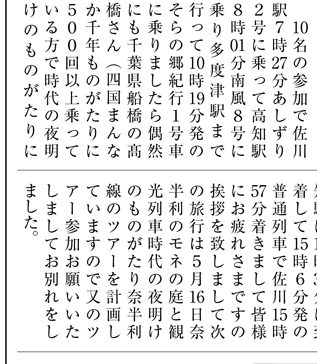 10名の参加で佐川
駅7時27分あしずり
2号に乗って高知駅
8時01分南風8号に
乗り多度津駅まで
行って10時19分発の
そらの郷紀行1号車
に乗りましたら偶然
にも千葉県船橋の髙
橋さん（四国まんな
か千年ものがたりに
500回以上乗って
いる方で時代の夜明
けのものがたりに
着して15時6分発の
普通列車で佐川15時
57分着きまして皆様
にお疲れさまですの
挨拶を致しまして次
の旅行は5月16日奈
半利のモネの庭と観
光列車時代の夜明け
のものがたり奈半利
線のツアーを計画し
ていますので又のツ
アー参加お願いいた
しましてお別れをし
ました。